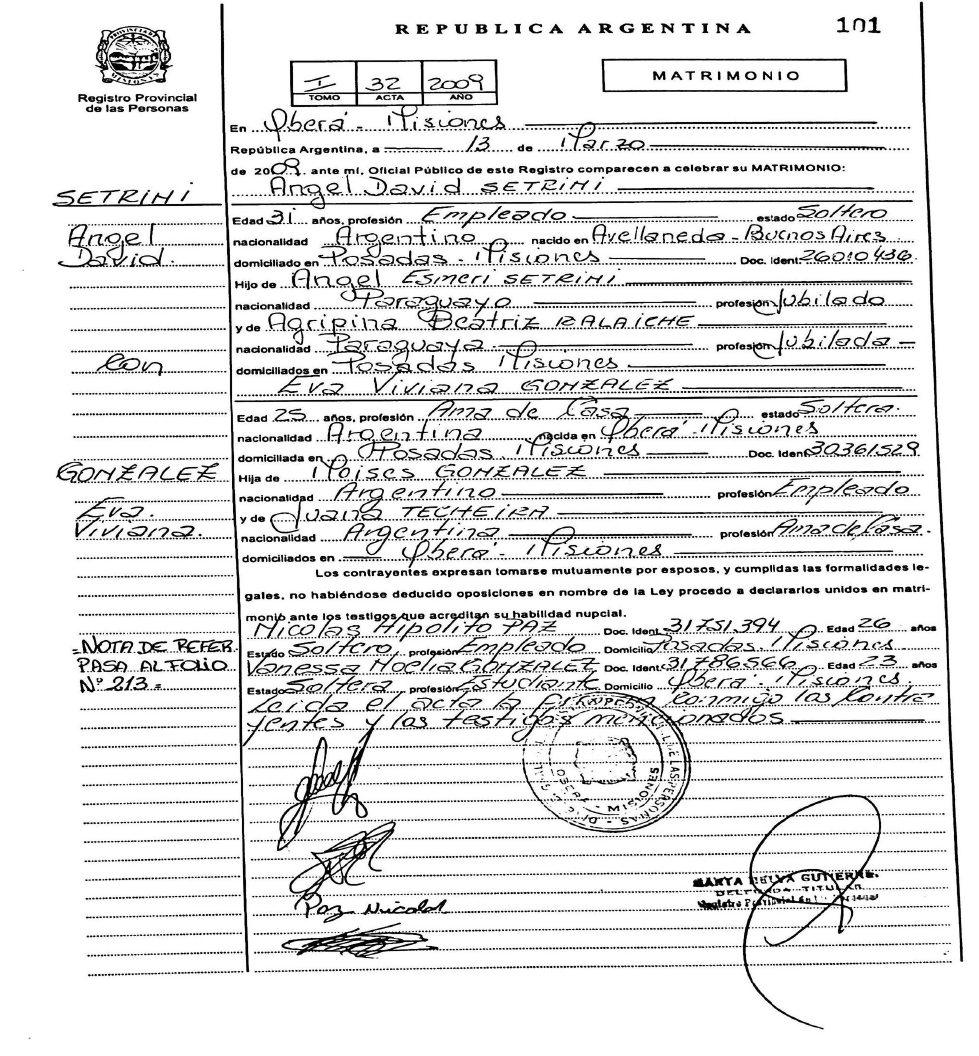 REPUBLICA ARGENTINA
101
Registro Provincial
de las Personas
I 32 2009
TOMO ACTA AÑO
MATRIMONIO
En Oberá - Misiones
República Argentina, a 13 de Marzo
de 2009. ante mí, Oficial Público de este Registro comparecen a celebrar su MATRIMONIO:
Angel David SETRINI
SETRINI
Angel
David.
Edad 31 años, profesión Empleado estado Soltero
nacionalidad Argentino nacido en Avellaneda - Buenos Aires
domiciliado en Posadas - Misiones Doc. Ident 26010436.
Hijo de Angel Esmeri SETRINI
nacionalidad Paraguayo profesión Jubilado
y de Agripina Beatriz RALAICHE
nacionalidad Paraguaya profesión Jubilada
con
domiciliados en Posadas Misiones
Eva Viviana GONZALEZ
Edad 25 años, profesión Ama de Casa estado Soltera.
nacionalidad Argentina nacida en Oberá - Misiones
domiciliada en Posadas Misiones Doc. Ident 30361529
GONZALEZ
Eva.
Viviana.
Hija de Moises GONZALEZ
nacionalidad Argentino profesión Empleado
y de Juana TECHEIRA
nacionalidad Argentina profesión Ama de Casa.
domiciliados en Oberá - Misiones
Los contrayentes expresan tomarse mutuamente por esposos, y cumplidas las formalidades le-
gales, no habiéndose deducido oposiciones en nombre de la Ley procedo a declararlos unidos en matri-
monio ante los testigos que acreditan su habilidad nupcial.
Nicolas Hipolito PAZ Doc. Ident 31751.394 Edad 26 años
Estado Soltero, profesión Empleado Domicilio Posadas. Misiones
Vanessa Noelia GONZALEZ Doc. Ident 31786566 Edad 23 años
Estado Soltera, profesión Estudiante Domicilio Oberá - Misiones.
- NOTA DE REFER.
PASA AL FOLIO
Nº 213 =
Leida el acta la firman conmigo los Contra
yentes y los testigos mencionados
OBERA - MISIONES
Paz Nicolas
MARTA GUTIERRE
TITULAR